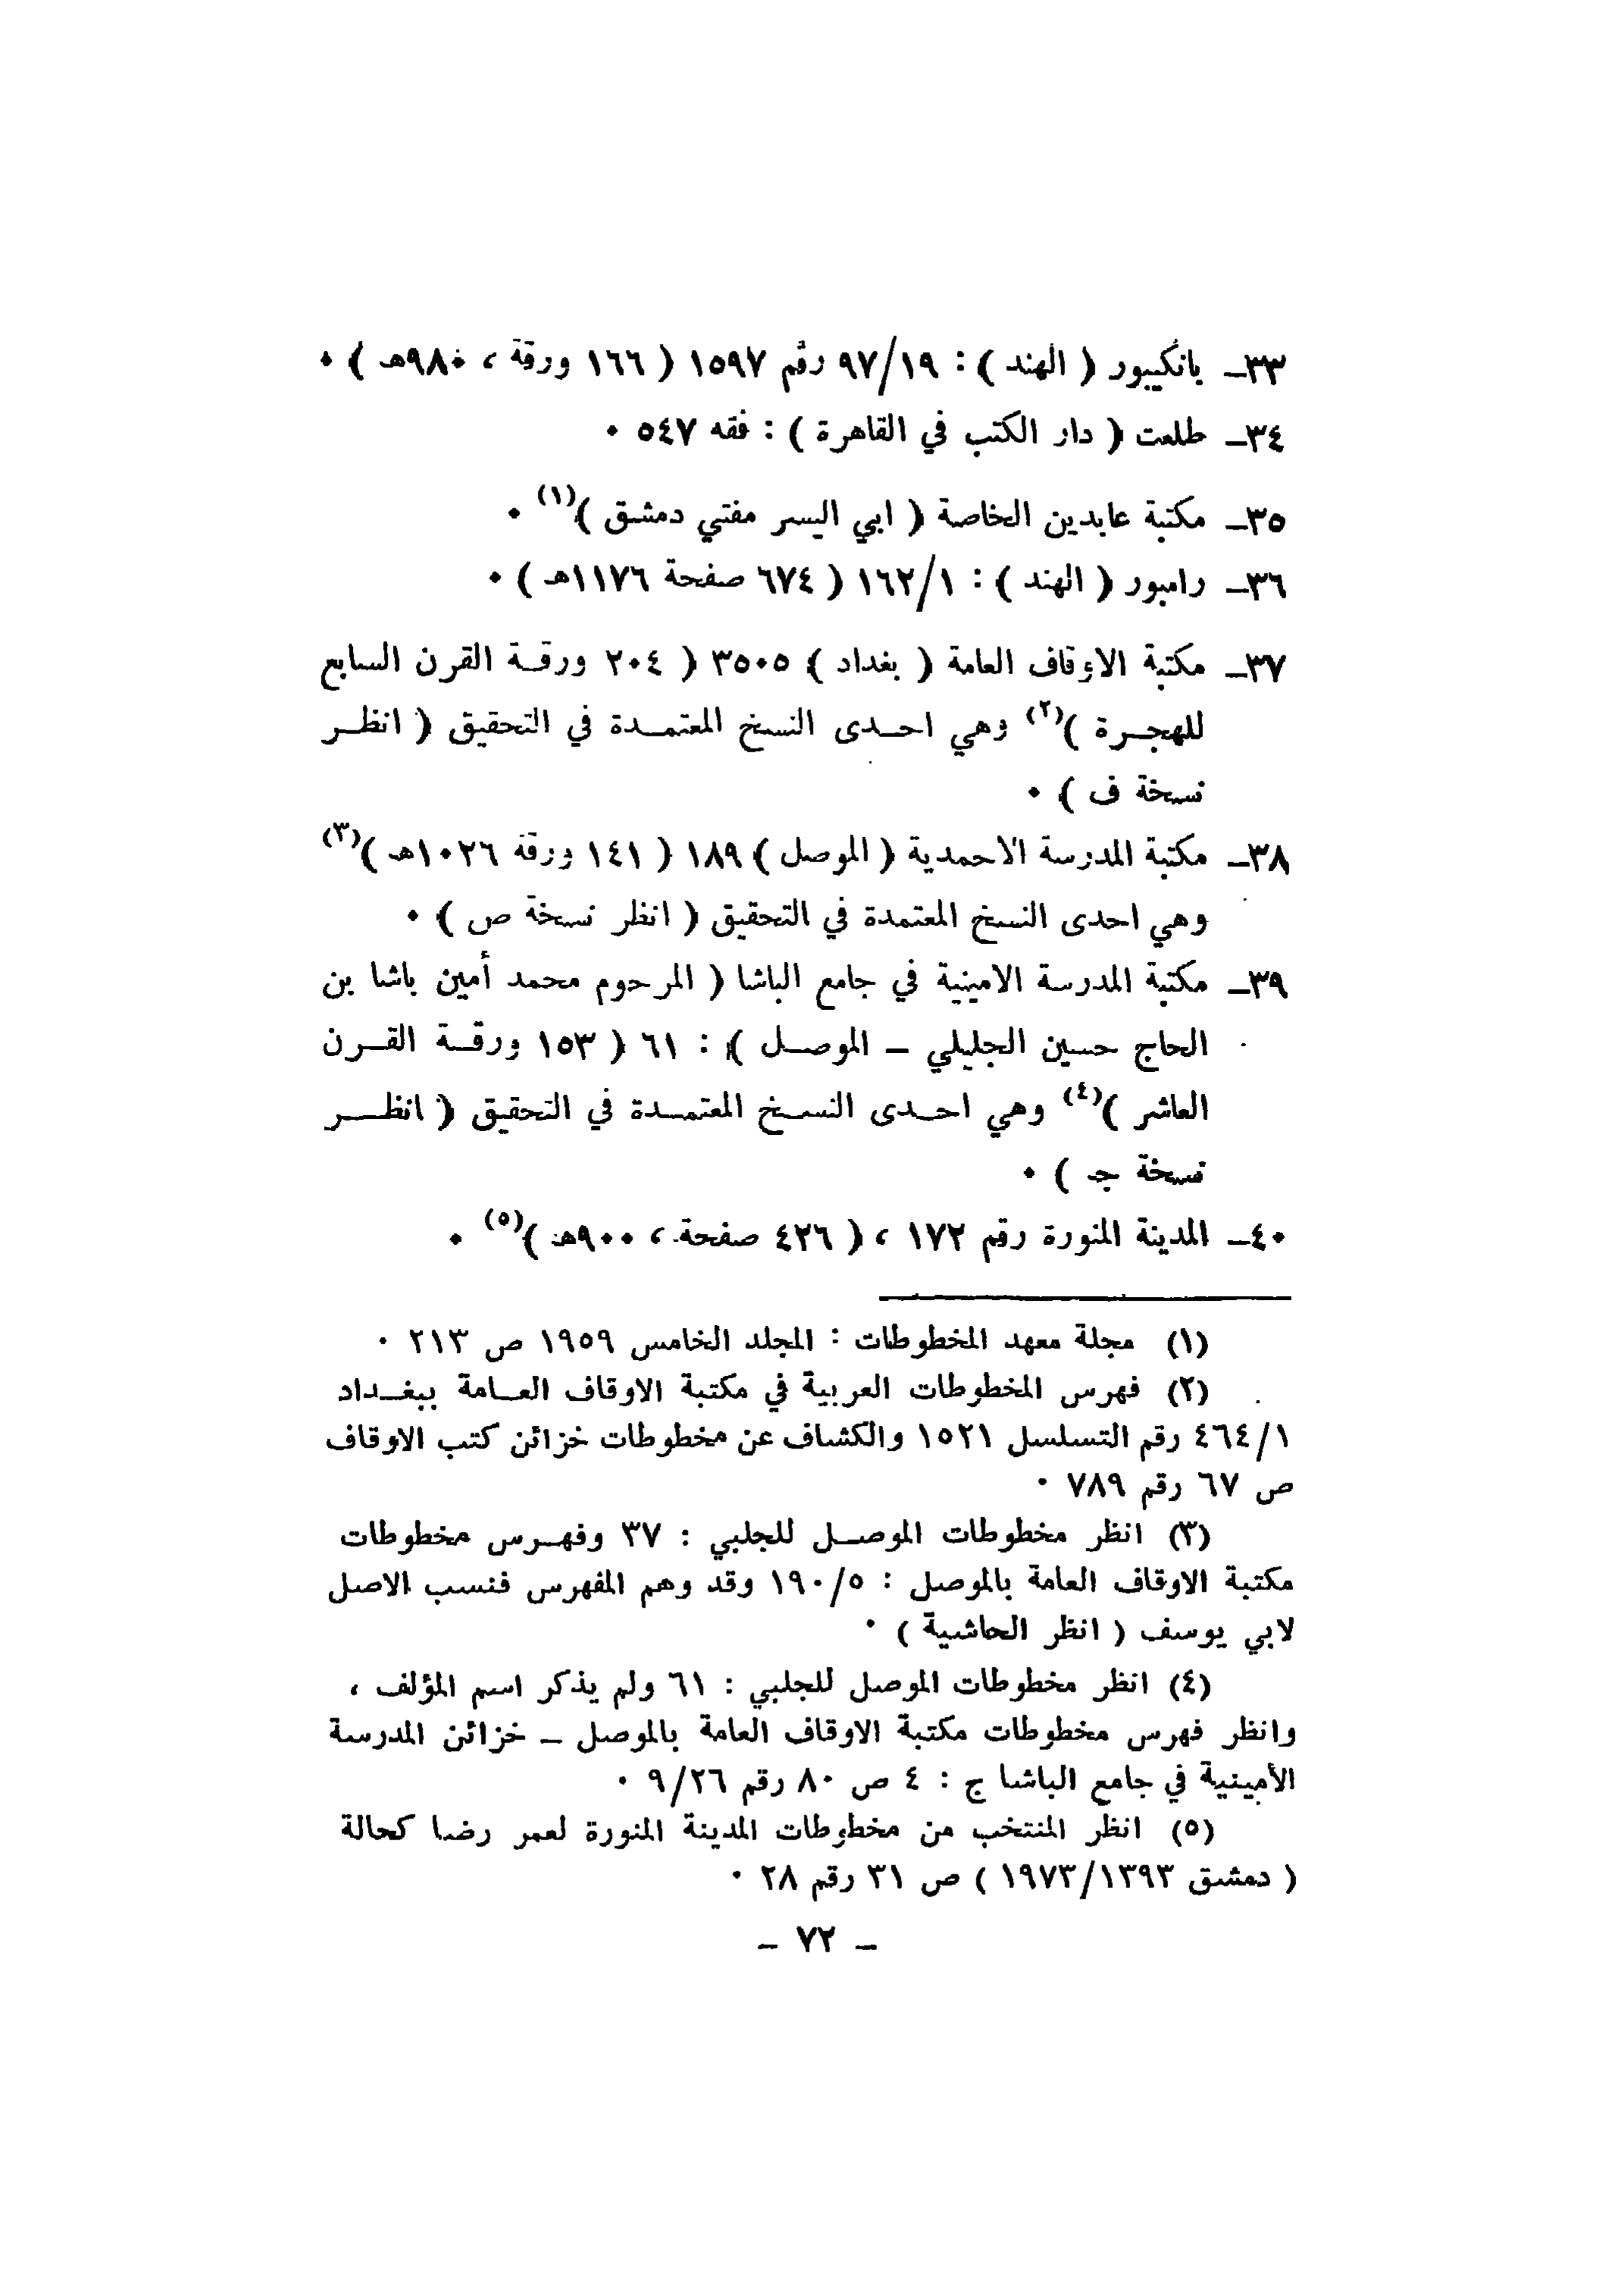 ٣٣ـ بانكيبور ( الهند ) : ٩٧/١٩ رقم ١٥٩٧ ( ١٦٦ ورقة ، ٩٨٠هـ ) ٠
٣٤ـ طلعت ( دار الكتب في القاهرة ) : فقه ٥٤٧ ٠
٣٥ـ مكتبة عابدين الخاصة ( ابي اليسر مفتي دمشق )(١) ٠
٣٦ـ رامبور ( الهند ) : ١٦٢/١ ( ٦٧٤ صفحة ١١٧٦هـ ) ٠
٣٧ـ مكتبة الاوقاف العامة ( بغداد ) ٣٥٠٥ ( ٢٠٤ ورقـة القرن السابع
للهجـرة )(٢) وهي احـدى النسخ المعتمـدة في التحقيق ( انظـر
نسخة ف ) ٠
٣٨ـ مكتبة المدرسة الاحمدية ( الموصل ) ١٨٩ ( ١٤١ ورقة ١٠٢٦هـ )(٣)
وهي احدى النسخ المعتمدة في التحقيق ( انظر نسخة ص ) ٠
٣٩ـ مكتبة المدرسة الامينية في جامع الباشا ( المرحوم محمد أمين باشا بن
الحاج حسين الجليلي ـ الموصـل ) : ٦١ ( ١٥٣ ورقـة القـرن
العاشر )(٤) وهي احـدى النسـخ المعتمـدة في التحقيق ( انظــر
نسخة جـ ) ٠
٤٠ـ المدينة المنورة رقم ١٧٢ ، ( ٤٢٦ صفحة ، ٩٠٠هـ )(٥) ٠
(١) مجلة معهد المخطوطات : المجلد الخامس ١٩٥٩ ص ٢١٣ ٠
(٢) فهرس المخطوطات العربية في مكتبة الاوقاف العـامة ببغـداد
٤٦٤/١ رقم التسلسل ١٥٢١ والكشاف عن مخطوطات خزائن كتب الاوقاف
ص ٦٧ رقم ٧٨٩ ٠
(٣) انظر مخطوطات الموصـل للجلبي : ٣٧ وفهـرس مخطوطات
مكتبة الاوقاف العامة بالموصل : ١٩٠/٥ وقد وهم المفهرس فنسب الاصل
لابي يوسف ( انظر الحاشية ) ٠
(٤) انظر مخطوطات الموصل للجلبي : ٦١ ولم يذكر اسم المؤلف ،
وانظر فهرس مخطوطات مكتبة الاوقاف العامة بالموصل ـ خزائن المدرسة
الأمينية في جامع الباشا ج : ٤ ص ٨٠ رقم ٩/٢٦ ٠
(٥) انظر المنتخب من مخطوطات المدينة المنورة لعمر رضا كحالة
( دمشق ١٩٧٣/١٣٩٣ ) ص ٣١ رقم ٢٨ ٠
ـ ٧٢ ـ